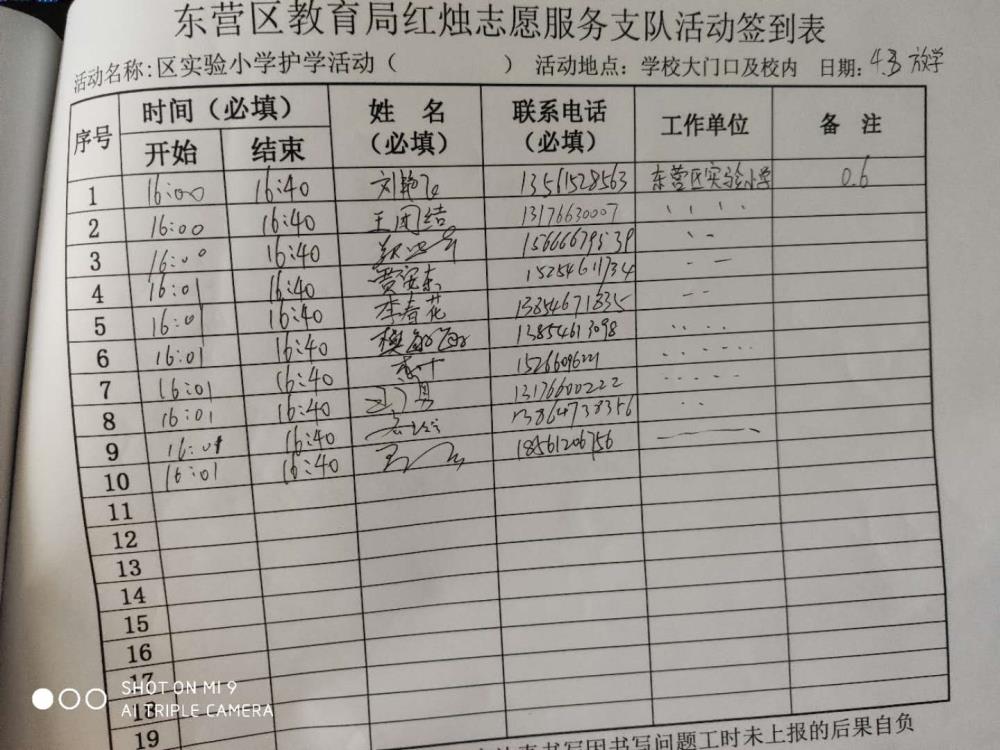 东营区教育局红烛志愿服务支队活动签到表
活动名称:区实验小学护学活动（ ） 活动地点：学校大门口及校内 日期: 放学
序号 时间（必填） 姓名（必填） 联系电话（必填） 工作单位 备注
开始 结束
1 16:00 16:40 13561528563 东营区实验小学 0.6
2 16:00 16:40 王团结 13176630007
3 16:00 16:40 15666679539
4 16:01 16:40 15254611734
5 16:01 16:40 李春花 13854671835
6 16:01 16:40 13854613098
7 16:01 16:40
8 16:01 16:40 13176600222
9 16:01 16:40 13864738356
10 16:01 16:40 18561206756
11
12
13
14
15
16
17
18
19
书写因书写问题工时未上报的后果自负
SHOT ON MI 9
AI TRIPLE CAMERA